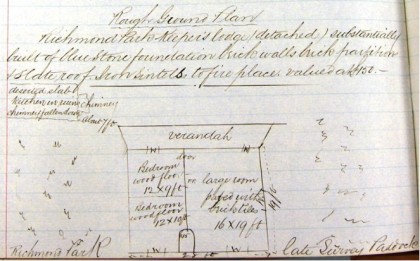 Rough Ground Plan
Richmond Park - Keepers lodge (detached) substantially
built of blue Stone foundation brick walls brick partition
& Slate roof. Iron lintels to fire place valued at £150.-
chimney
about 7 ft
kitchen in ruins
chimney fallen down
verandah
W
W
door
Bedroom
wood floor
12 x 9 ft
or large room
paved with
brick tiles
16 x 19 ft
19 ft
Bedroom
wood floor
12 x 10 ft
W
W
Richmond Park
late Survey Paddock